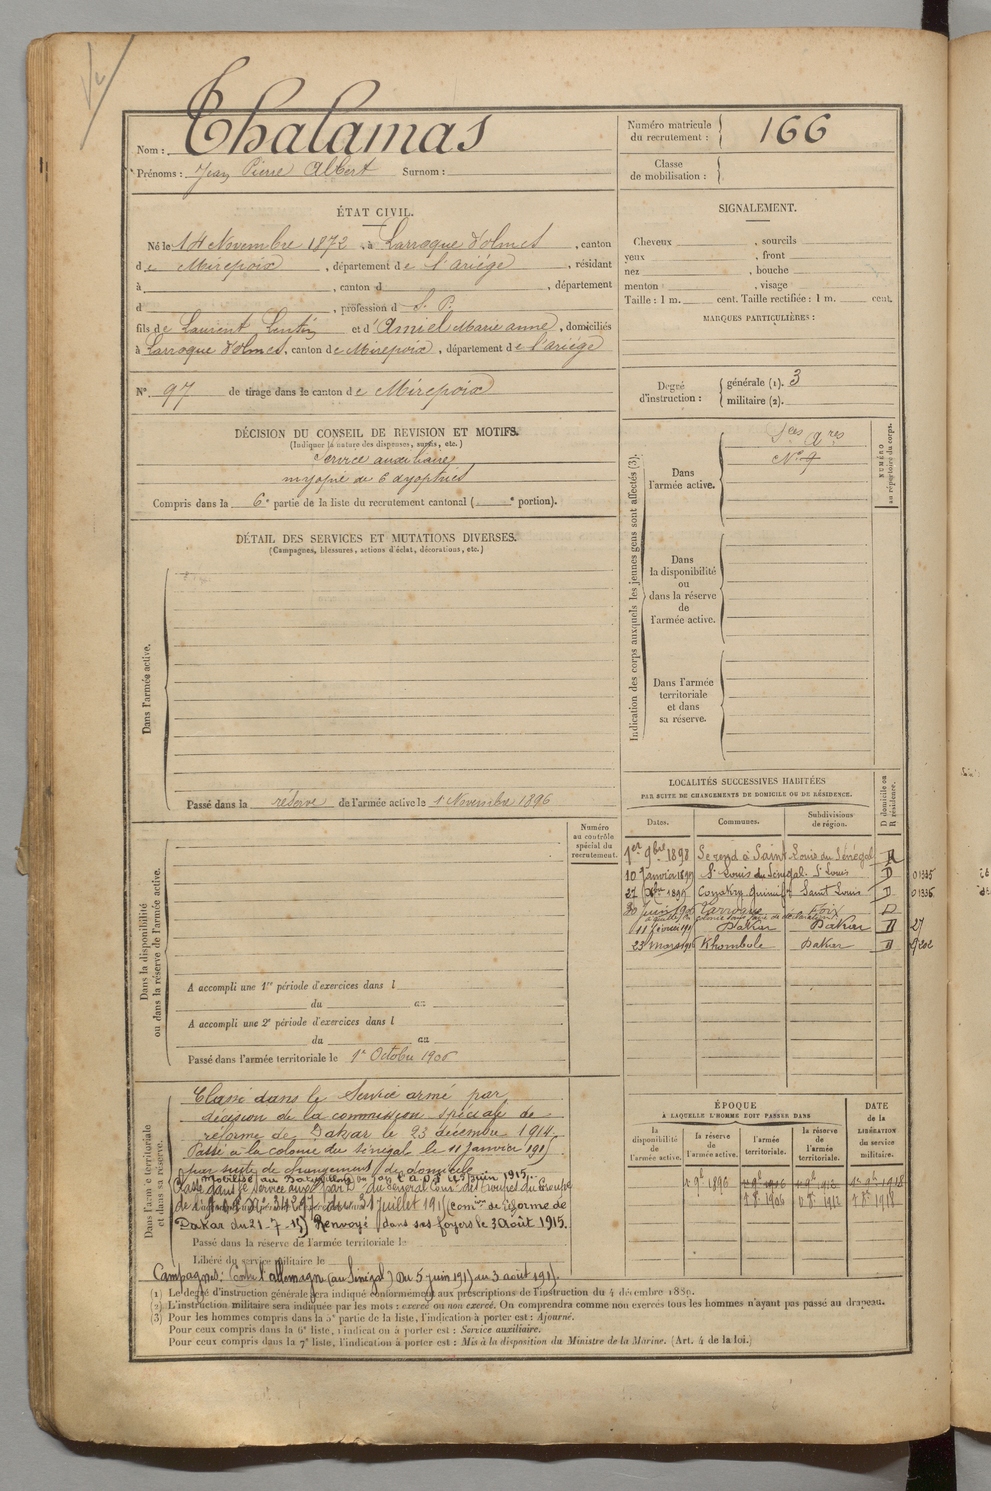 Nom : Thalamas
Prénoms : Jean Pierre Albert Surnom :
Numéro matricule du recrutement : 166
Classe de mobilisation :
ÉTAT CIVIL.
Né le 14 Novembre 1872, à Larroque d'olmes, canton
de Mirepoix, département de l'ariège, résidant
à , canton d , département
d , profession d S. P.
fils de Laurent et d'Amiel Marie anne, domiciliés
à Larroque d'olmes, canton de Mirepoix, département de l'ariège
N° 97 de tirage dans le canton de Mirepoix
DÉCISION DU CONSEIL DE REVISION ET MOTIFS.
(Indiquer la nature des dispenses, sursis, etc.)
Service auxiliaire
myopie de 6 dyoptries
Compris dans la 6e partie de la liste du recrutement cantonal ( e portion).
DÉTAIL DES SERVICES ET MUTATIONS DIVERSES.
(Campagnes, blessures, actions d'éclat, décorations, etc.)
Dans l'armée active.
Passé dans la réserve de l'armée active le 1 Novembre 1896
SIGNALEMENT.
Cheveux , sourcils
yeux , front
nez , bouche
menton , visage
Taille : 1 m. cent. Taille rectifiée : 1 m. cent.
MARQUES PARTICULIÈRES :
Degré d'instruction : générale (1). 3
militaire (2).
Indication des corps auxquels les jeunes gens sont affectés (3).
NUMÉRO au répertoire du corps.
Dans l'armée active.
Sces ares
N° 9
Dans la disponibilité ou dans la réserve de l'armée active.
Dans l'armée territoriale et dans sa réserve.
Dans la disponibilité ou dans la réserve de l'armée active.
Numéro au contrôle spécial du recrutement.
A accompli une 1re période d'exercices dans l
du au
A accompli une 2e période d'exercices dans l
du au
Passé dans l'armée territoriale le 1er Octobre 1906
LOCALITÉS SUCCESSIVES HABITÉES
PAR SUITE DE CHANGEMENTS DE DOMICILE OU DE RÉSIDENCE.
Dates. Communes. Subdivisions de région. D domicile ou R résidence.
1er 9bre 1898 Se rend à Saint Louis du Sénégal R
10 Janvier 1899 St Louis du Sénégal St Louis D 01335
Xbre 1899 Conakry Saint Louis D 01336
Juin Larroque Foix D
11 février Dakar Dakar D 27
23 mars Khombole Dakar D
Dans l'armée territoriale et dans sa réserve.
Classé dans le Service armé par
décision de la commission spéciale de
réforme de Dakar le 23 décembre 1914
Passé à la colonie du Sénégal le 11 janvier 191
par suite de changement de domicile
Mobilisé au Bataillon 5 juin 1915.
Passé dans le service aux
juillet 191 (comon de réforme de
Dakar du 21-7-15) Renvoyé dans ses foyers le 3 Août 1915.
Passé dans la réserve de l'armée territoriale le
Libéré du service militaire le
Campagnes : Contre l'allemagne (au Sénégal) Du 5 juin 191 au 3 août 191 .
ÉPOQUE
À LAQUELLE L'HOMME DOIT PASSER DANS
la disponibilité de l'armée active. la réserve de l'armée active. l'armée territoriale. la réserve de l'armée territoriale.
DATE de la LIBÉRATION du service militaire.
1 9bre 1896
1 8bre 1906 1 8bre 1912 1 8bre 1918
(1) Le degré d'instruction générale sera indiqué conformément aux prescriptions de l'instruction du 4 décembre 1889.
(2) L'instruction militaire sera indiquée par les mots : exercé ou non exercé. On comprendra comme non exercés tous les hommes n'ayant pas passé au drapeau.
(3) Pour les hommes compris dans la 5e partie de la liste, l'indication à porter est : Ajourné.
Pour ceux compris dans la 6e liste, l'indication à porter est : Service auxiliaire.
Pour ceux compris dans la 7e liste, l'indication à porter est : Mis à la disposition du Ministre de la Marine. (Art. 4 de la loi.)